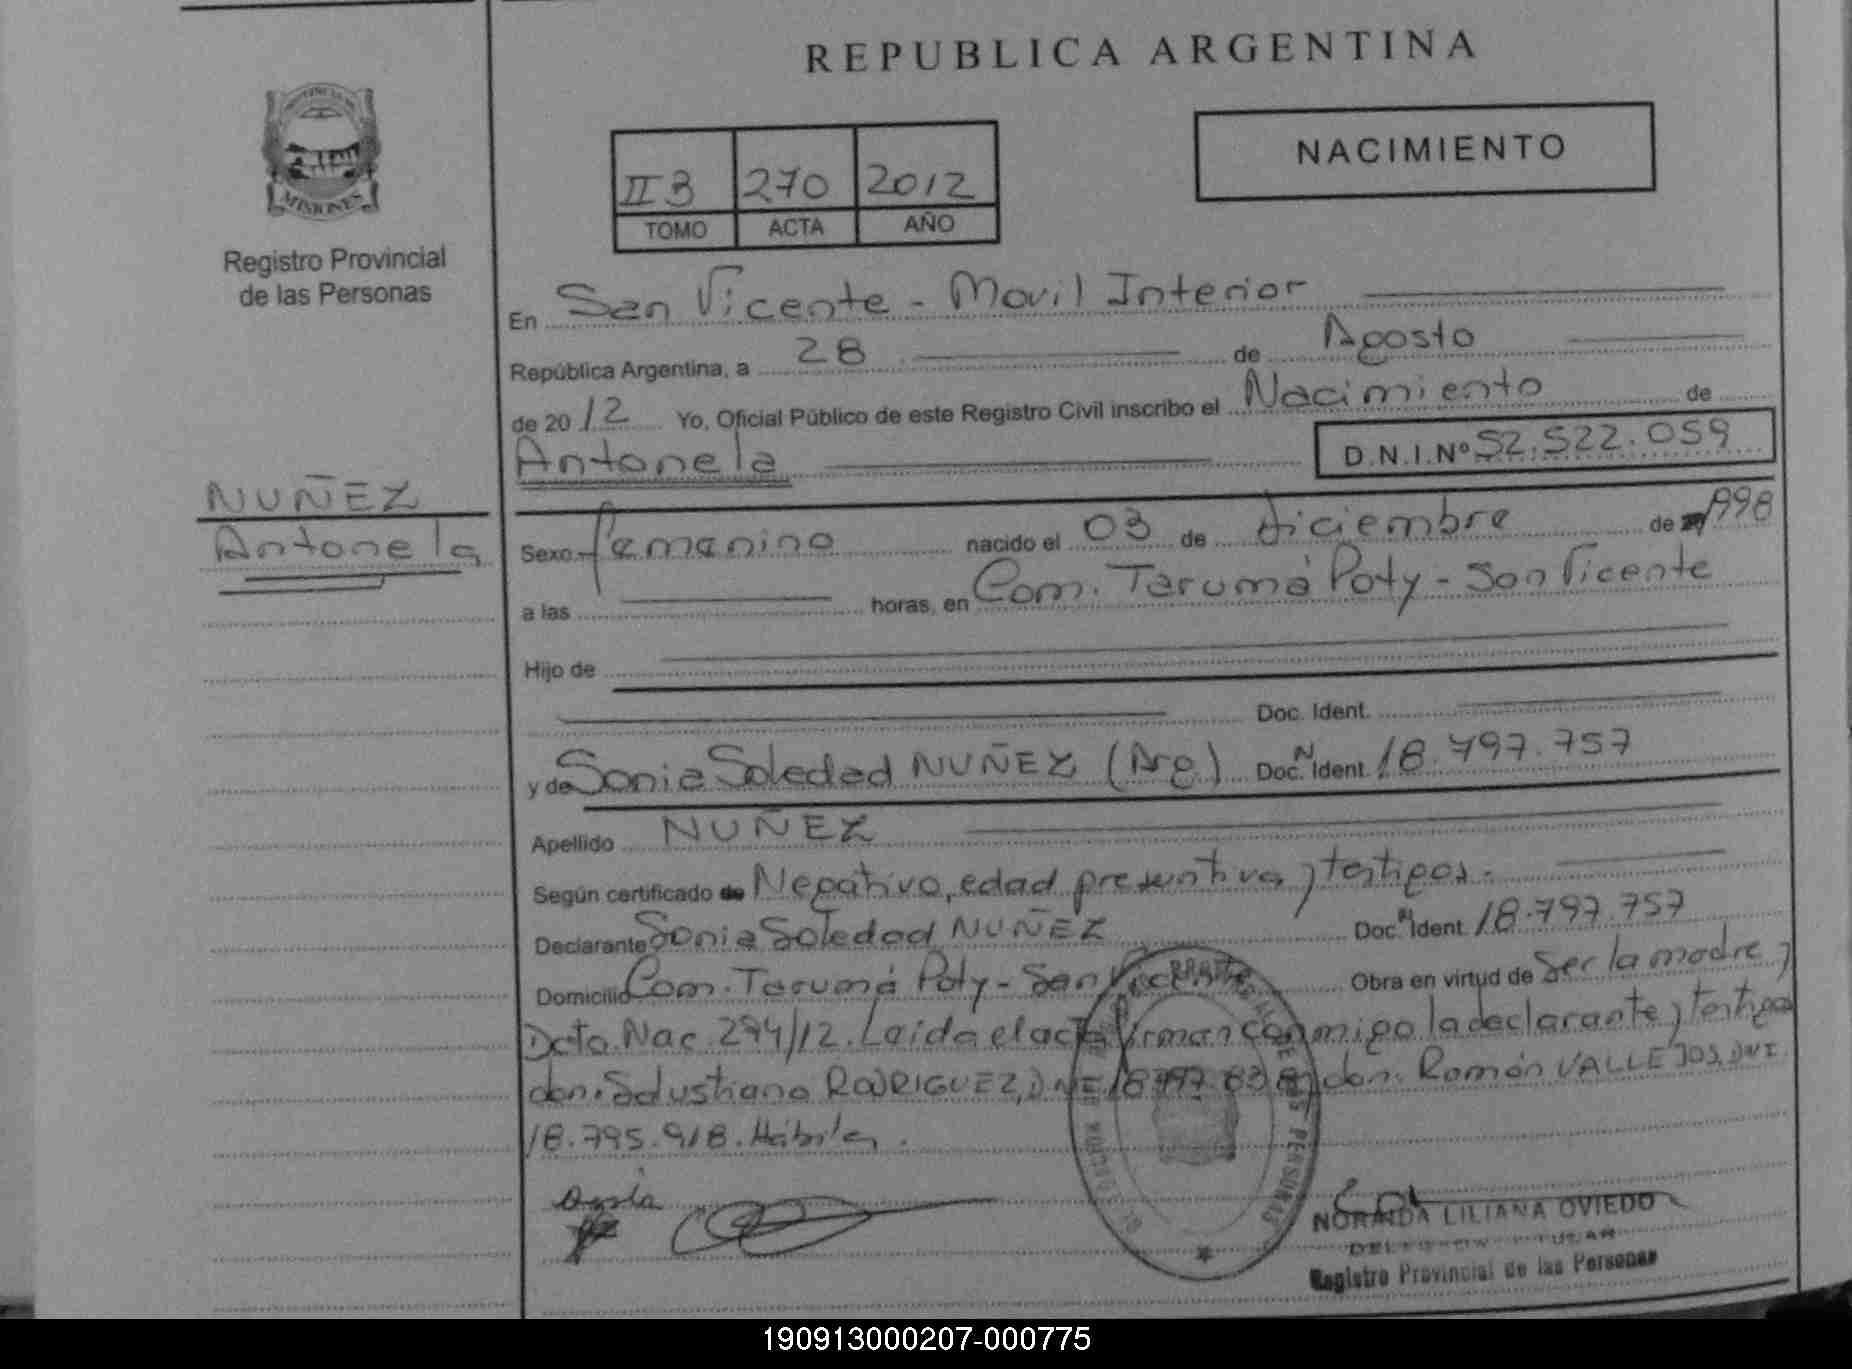 REPUBLICA ARGENTINA
PROVINCIA DE
MISIONES
Registro Provincial
de las Personas
NACIMIENTO
II 3 270 2012
TOMO ACTA AÑO
En San Vicente - Movil Interior
República Argentina, a 28 de Agosto
de 2012 Yo, Oficial Público de este Registro Civil inscribo el Nacimiento de
Antonela D.N.I.Nº 52.522.059
NUÑEZ
Antonela
Sexo femenino nacido el 03 de diciembre de 1998
a las horas, en Com. Tarumá Poty - San Vicente
Hijo de
Doc. Ident.
y de Sonia Soledad NUÑEZ (Arg) Doc. N Ident. 18.797.757
Apellido NUÑEZ
Según certificado de Negativo, edad presuntiva y testigos.
Declarante Sonia Soledad NUÑEZ Doc. N Ident. 18.797.757
Domicilio Com. Tarumá Poty - San Vicente Obra en virtud de Ser la madre y
Dcto. Nac. 274/12. Leida el acta firman conmigo la declarante y testigos
don. Salustiano RODRIGUEZ, DNI 18.797.838 don. Román VALLEJOS, DNI.
18.795.918. Hábiles.
NORAIDA LILIANA OVIEDO
Registro Provincial de las Personas
190913000207-000775